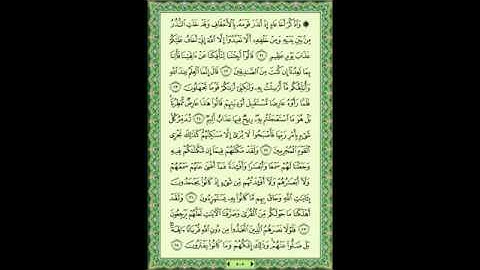 ۞ وَٱذْكُرْ أَخَا عَادٍ إِذْ أَنذَرَ قَوْمَهُۥ بِٱلْأَحْقَافِ وَقَدْ خَلَتِ ٱلنُّذُرُ
مِنۢ بَيْنِ يَدَيْهِ وَمِنْ خَلْفِهِۦٓ أَلَّا تَعْبُدُوٓا۟ إِلَّا ٱللَّهَ إِنِّىٓ أَخَافُ عَلَيْكُمْ
عَذَابَ يَوْمٍ عَظِيمٍ ٢١ قَالُوٓا۟ أَجِئْتَنَا لِتَأْفِكَنَا عَنْ ءَالِهَتِنَا فَأْتِنَا
بِمَا تَعِدُنَآ إِن كُنتَ مِنَ ٱلصَّٰدِقِينَ ٢٢ قَالَ إِنَّمَا ٱلْعِلْمُ عِندَ ٱللَّهِ
وَأُبَلِّغُكُم مَّآ أُرْسِلْتُ بِهِۦ وَلَٰكِنِّىٓ أَرَىٰكُمْ قَوْمًا تَجْهَلُونَ ٢٣
فَلَمَّا رَأَوْهُ عَارِضًا مُّسْتَقْبِلَ أَوْدِيَتِهِمْ قَالُوا۟ هَٰذَا عَارِضٌ مُّمْطِرُنَا
بَلْ هُوَ مَا ٱسْتَعْجَلْتُم بِهِۦ رِيحٌ فِيهَا عَذَابٌ أَلِيمٌ ٢٤ تُدَمِّرُ كُلَّ
شَىْءٍۭ بِأَمْرِ رَبِّهَا فَأَصْبَحُوا۟ لَا يُرَىٰٓ إِلَّا مَسَٰكِنُهُمْ كَذَٰلِكَ نَجْزِى
ٱلْقَوْمَ ٱلْمُجْرِمِينَ ٢٥ وَلَقَدْ مَكَّنَّٰهُمْ فِيمَآ إِن مَّكَّنَّٰكُمْ فِيهِ
وَجَعَلْنَا لَهُمْ سَمْعًا وَأَبْصَٰرًا وَأَفْـِٔدَةً فَمَآ أَغْنَىٰ عَنْهُمْ سَمْعُهُمْ
وَلَآ أَبْصَٰرُهُمْ وَلَآ أَفْـِٔدَتُهُم مِّن شَىْءٍ إِذْ كَانُوا۟ يَجْحَدُونَ
بِـَٔايَٰتِ ٱللَّهِ وَحَاقَ بِهِم مَّا كَانُوا۟ بِهِۦ يَسْتَهْزِءُونَ ٢٦ وَلَقَدْ
أَهْلَكْنَا مَا حَوْلَكُم مِّنَ ٱلْقُرَىٰ وَصَرَّفْنَا ٱلْءَايَٰتِ لَعَلَّهُمْ يَرْجِعُونَ
٢٧ فَلَوْلَا نَصَرَهُمُ ٱلَّذِينَ ٱتَّخَذُوا۟ مِن دُونِ ٱللَّهِ قُرْبَانًا ءَالِهَةًۢ
بَلْ ضَلُّوا۟ عَنْهُمْ وَذَٰلِكَ إِفْكُهُمْ وَمَا كَانُوا۟ يَفْتَرُونَ ٢٨
٥٠٥